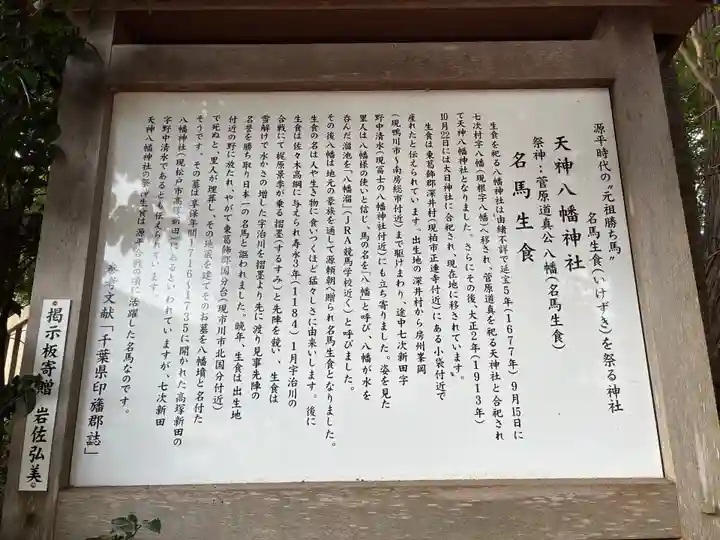 源平時代の"元祖勝ち馬"
名馬生食(いけずき)を祭る神社
天神八幡神社
祭神:菅原道真公八幡(名馬生食)
名馬生食
生食を祀る八幡神社は由緒不詳で延宝5年(1677年)9月15日に
七次村字八幡(現根字八幡)へ移され、菅原道真を祀る天神社と合祀され
て天神八幡神社となりました。さらにその後、大正2年(1913年)
10月22日には大日神社に合祀され、現在地に移されています。
生食は東葛飾郡深井村(現柏市正連寺付近)にある小袋付近で
産れたと伝えられています。出生地の深井村から房州峯岡
(現鴨川市~南房総市付近)まで駆けまわり、途中七次新田字
野中清水(現冨士の八幡神社付近)にも立ち寄りました。姿を見た
里人は、八幡様の使いと信じ、馬の名を「八幡」と呼び、八幡が水を
呑んだ溜池を「八幡溜」(JRA競馬学校近く)と呼びました。
その後八幡は地元の豪族を通して源頼朝へ贈られ名馬生食となりました。
生食の名は人や生き物に食いつくほど猛々しさに由来します。後に
生食は佐々木高綱に与えられ寿永3年(1184)1月宇治川の
合戦にて梶原景季が乗る摺墨(するすみ)と先陣を競い、生食は
雪解けで水かさの増した宇治川を摺墨より先に渡り見事先陣の
名誉を勝ち取り日本一の名馬と謳われました。晩年、生食は出生地
付近の野に放たれ、やがて東葛飾郡国分台(現市川市北国分付近)
で死ぬと、里人が埋葬し、その地蔵を建てそのお墓を八幡墳と名付けた
そうです。その墓は享保年間1716~1735に開かれた高塚新田の
八幡神社(現松戸市高塚新田)にあるといわれていますが、七次新田
字野中清水であるとも伝えられています。
天神八幡神社の祭神生食は源平合戦の頃に活躍した名馬なのです。
参考文献「千葉県印旛郡誌」
掲示板寄贈 岩佐弘美